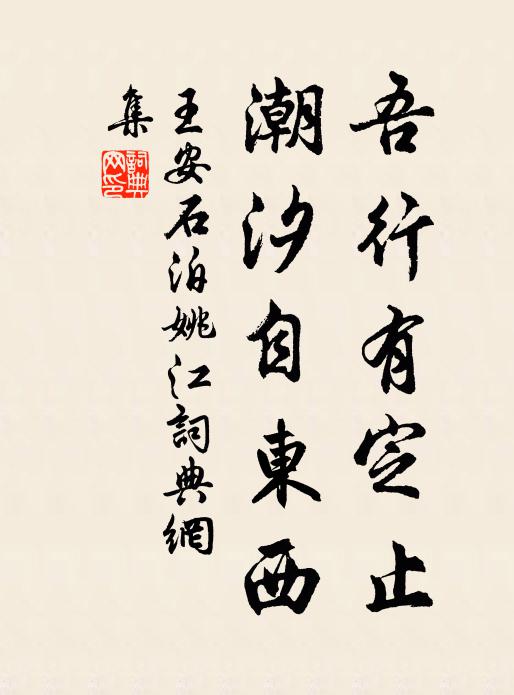 吾行有定止
潮汐自東西
王安石泊姚江詞典網
集
詞典
網印